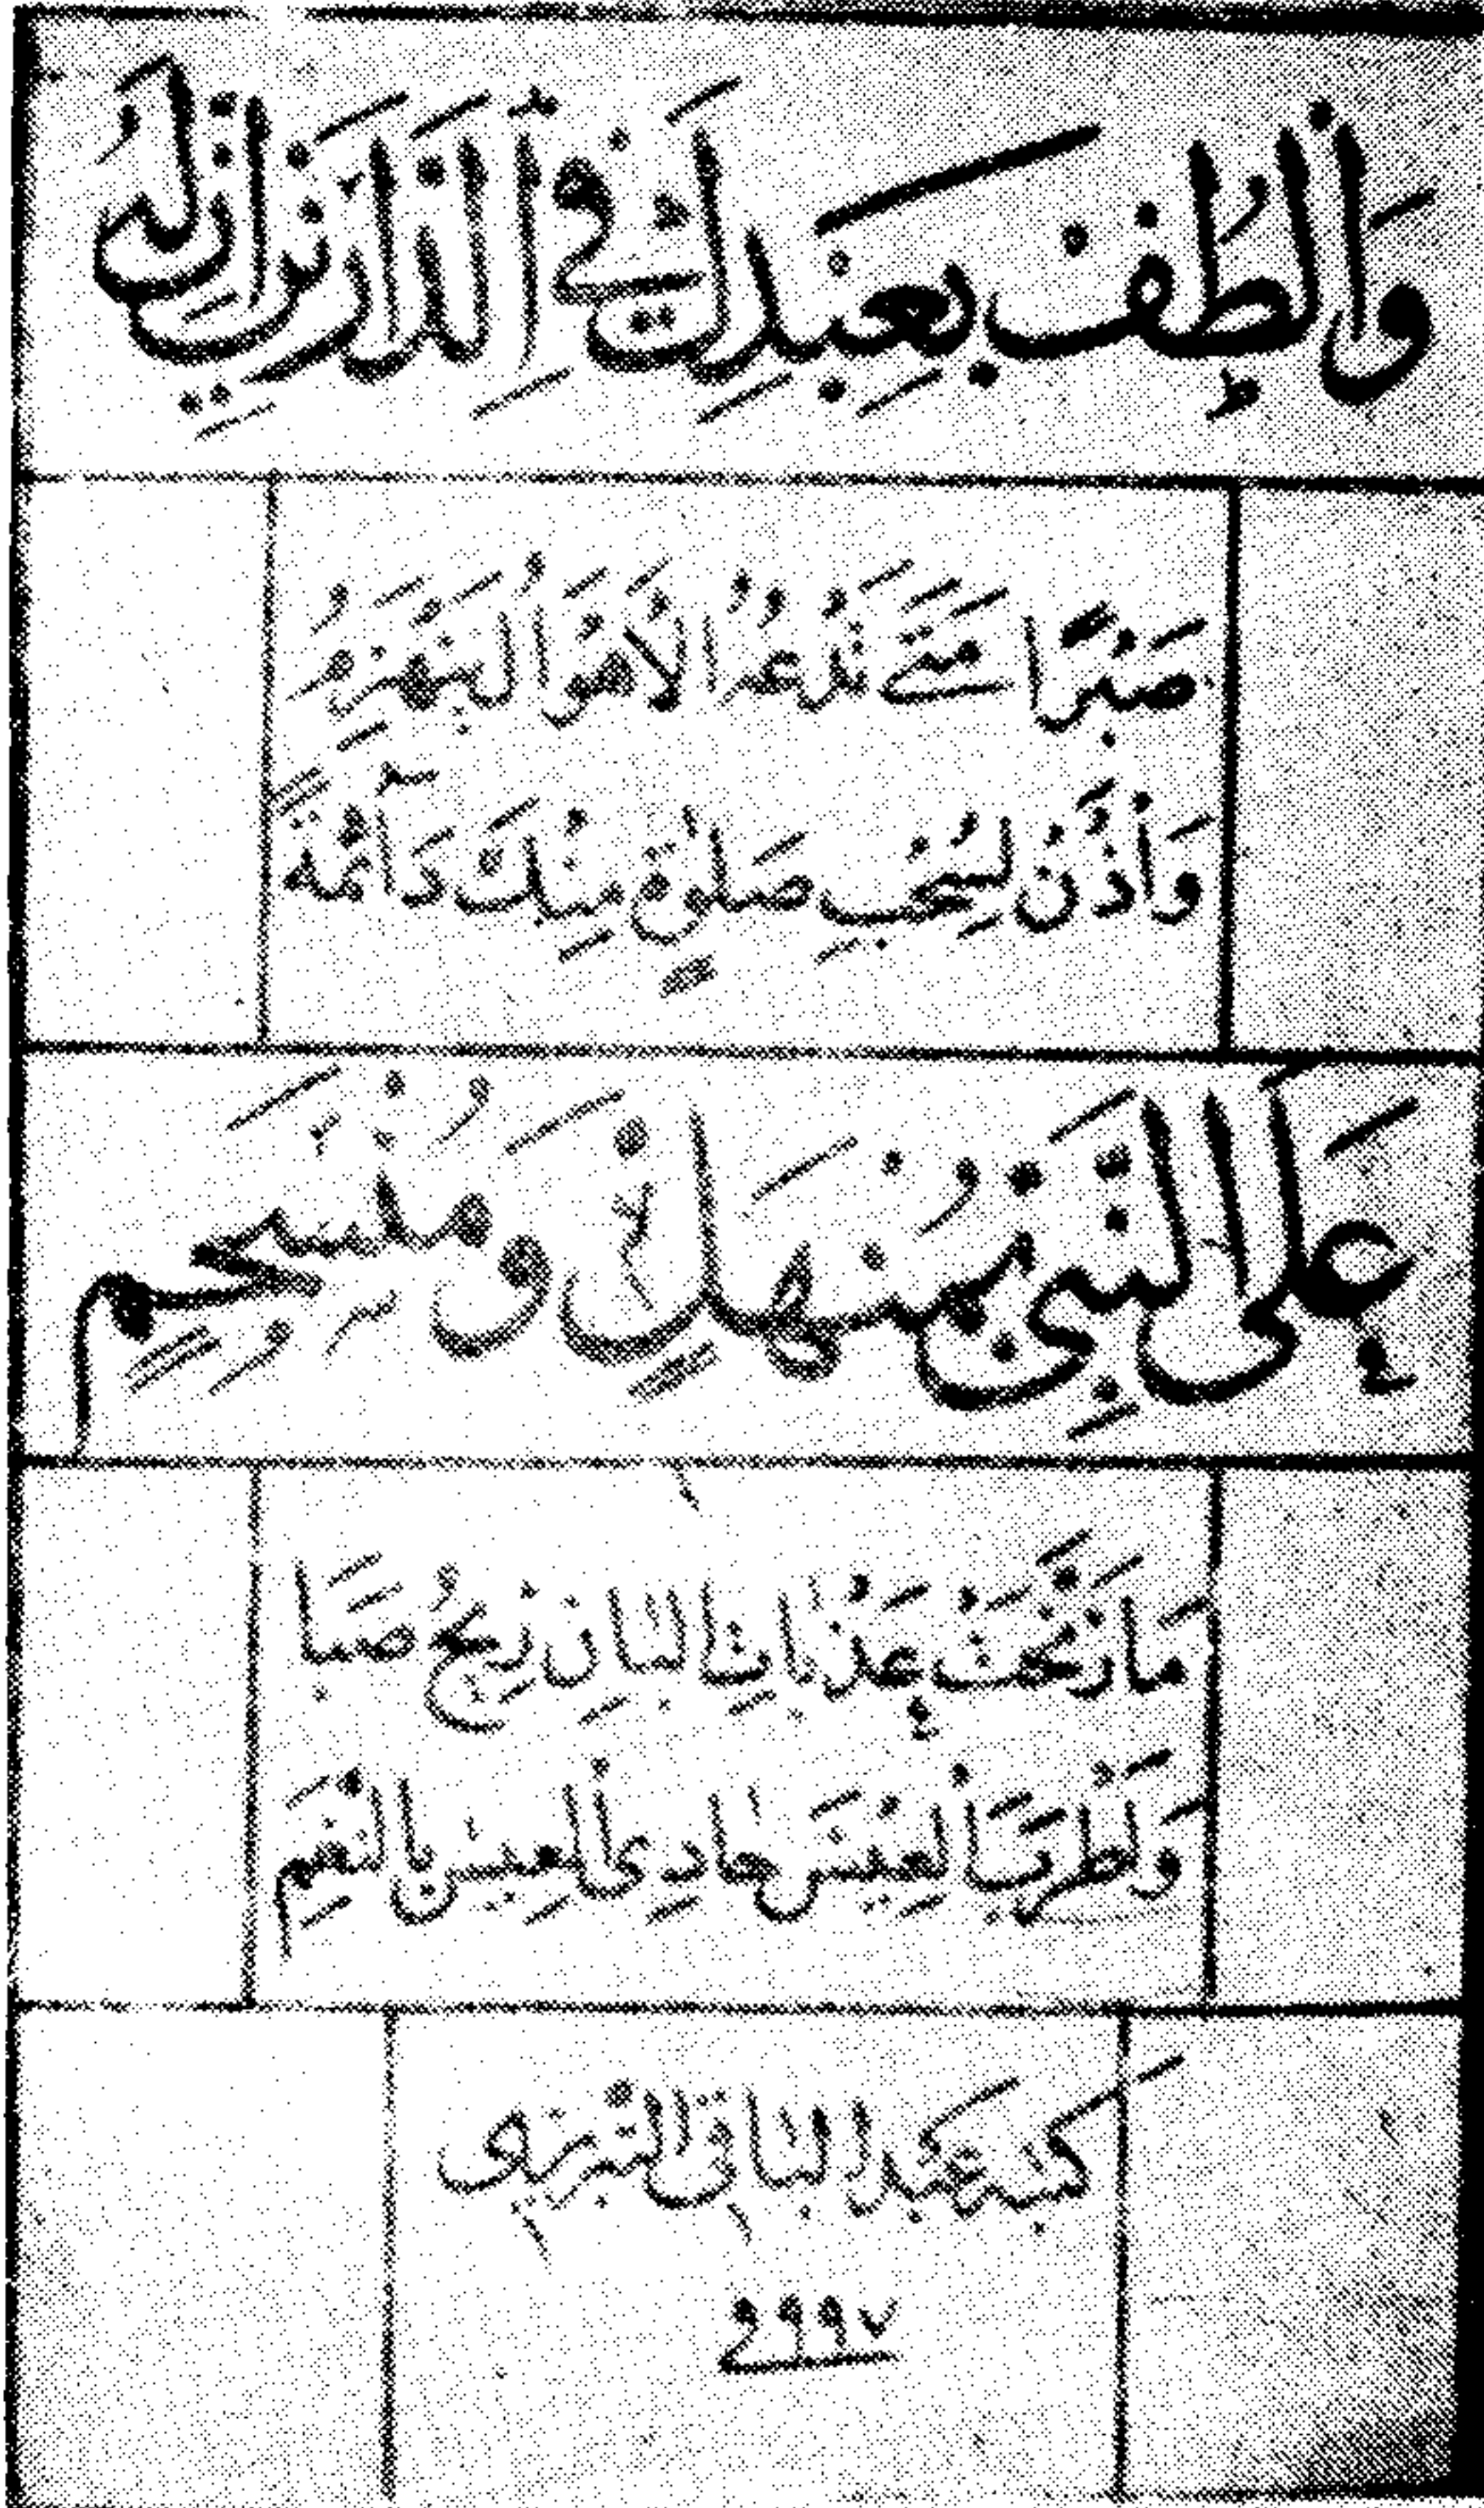 وَالْطُفْ بِعَبْدِكَ فِي الدَّارَيْنِ اِنَّ لَهُ
صَبْرًا مَتَى تَدْعُهُ الْاَهْوَالُ يَنْهَزِمُ
وَاْذَنْ لِسُحْبِ صَلٰوةٍ مِنْكَ دَائِمَةً
عَلَى النَّبِيِّ بِمُنْهَلٍّ وَمُنْسَجِمٍ
مَا رَنَّحَتْ عَذَبَاتِ الْبَانِ رِيحُ صَبَا
وَاَطْرَبَ الْعِيسَ حَادِي الْعِيسِ بِالنَّغَمِ
كتبه عَبد الباقى التبريزى